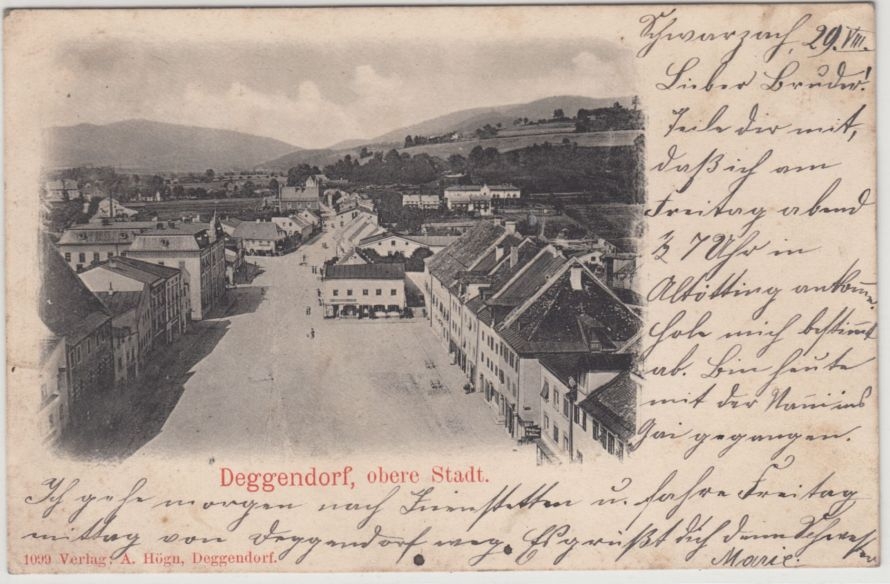 Schwarzach, 29. VIII.
Lieber Bruder!
Teile dir mit,
daß ich am
Freitag abend
½ 7 Uhr in
Altötting ankomme.
Hole mich bestimmt
ab. Bin heute
mit der Nanni ins
Gai gegangen.
Deggendorf, obere Stadt.
Ich gehe morgen nach u. fahre Freitag
mittag von Deggendorf weg. Es grüßt dich deine Schwester
Marie.
1099 Verlag: A. Högn, Deggendorf.